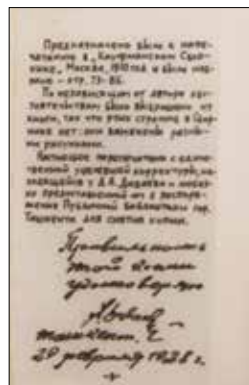 Предназначено было к напе-
чатанию в „Кауфманском Сбор-
нике", Москва, 1910 год и было наб-
рано – стр. 73-86.
По независящим от автора об-
стоятельствам было выброшено из
книги, так что этих страниц в Сбор-
нике нет: они заменены разны-
ми рисунками.
Настоящее перепечатано с един-
ственной уцелевшей корректуры, на-
ходящейся у А.А. Диваева и любез-
но предоставленной им в распоря-
жение Публичной библиотеки гор.
Ташкента для снятия копии.
Правильность
этой копии
удостоверяю
А Диваев
Ташкент. г.
29 февраля 1928 г.